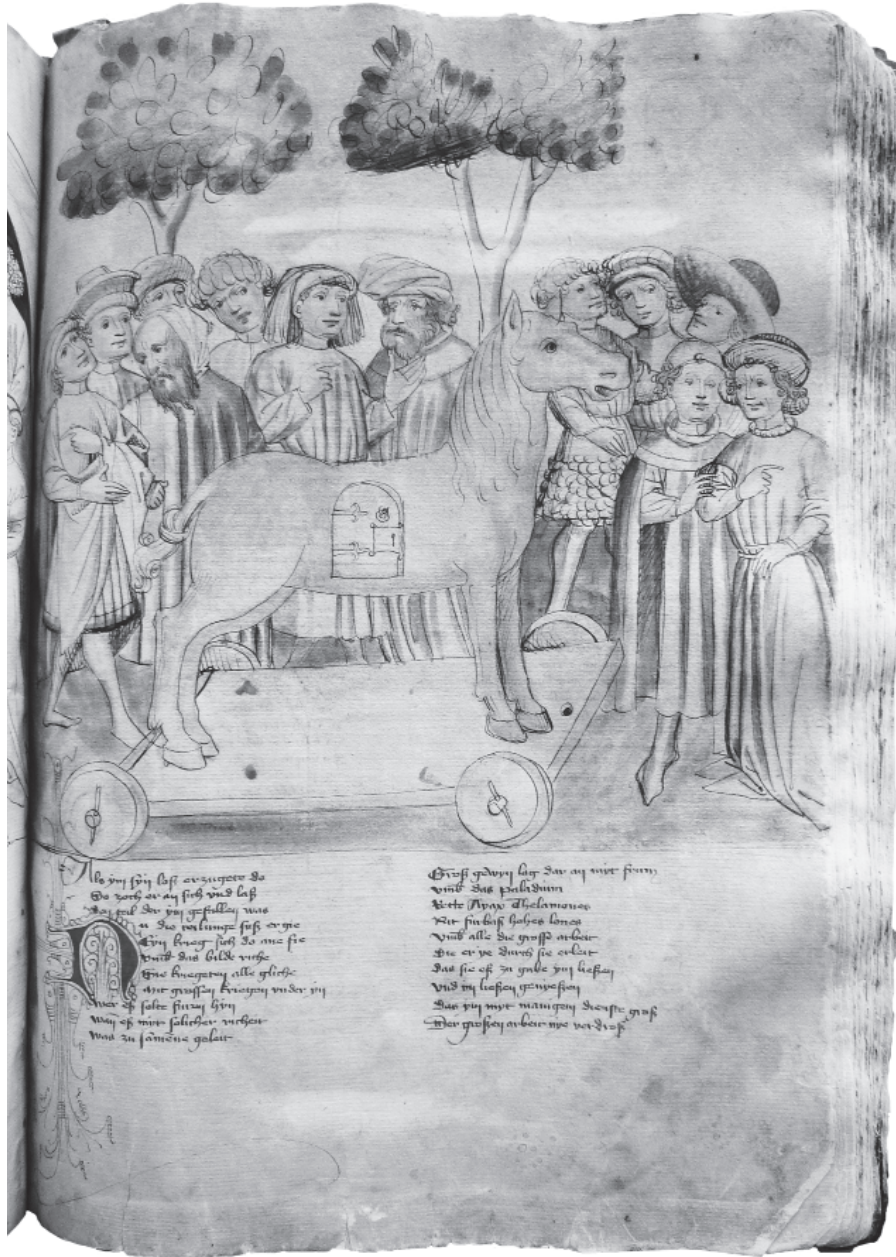 Als ym syn loß erzugete do
Do zoch er an sich vnd laß
Den teil der ym gefallen was
Nu die teilunge suß ergie
Eyn krieg sich do ane fie
vmb das bilde riche
Sie kriegeten alle gliche
mit grossen kriegen vnder yn
wer eß solte furen hyn
wan eß myt solicher richeit
was zu samene geleit
Groß gewyn lag dar an myt frum
vmb das paladium
Rette Ayax Thelamones
Rit furbaß hohes lones
vmb alle die grosse arbeit
Die er ye durch sie erleit
das sie eß zu gabe ym liessen
vnd yn liessen genyessen
das yn myt manigem dienste groß
Der grossen arbeit nye verdroß